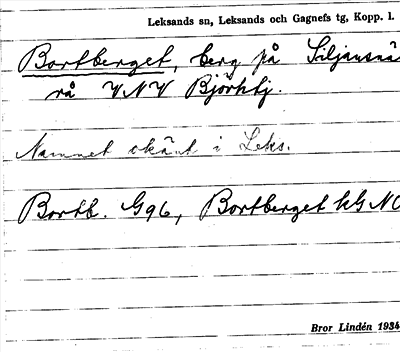 Leksands sn, Leksands och Gagnefs tg, Kopp. l.
Bortberget, berg på Siljansnäs
rå VNV Björktj.
Namnet okänt i Leks.
Bortb. G96, Bortberget kG NO
Bror Lindén 1934